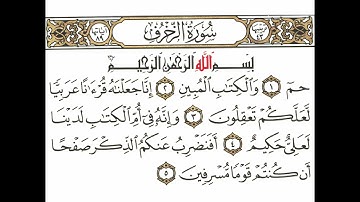 سُورَةُ الزُّخْرُفِ
بِسْمِ اللَّهِ الرَّحْمَٰنِ الرَّحِيمِ
حمٓ ۝١ وَٱلْكِتَٰبِ ٱلْمُبِينِ ۝٢ إِنَّا جَعَلْنَٰهُ قُرْءَٰنًا عَرَبِيًّا
لَّعَلَّكُمْ تَعْقِلُونَ ۝٣ وَإِنَّهُۥ فِىٓ أُمِّ ٱلْكِتَٰبِ لَدَيْنَا
لَعَلِىٌّ حَكِيمٌ ۝٤ أَفَنَضْرِبُ عَنكُمُ ٱلذِّكْرَ صَفْحًا
أَن كُنتُمْ قَوْمًا مُّسْرِفِينَ ۝٥